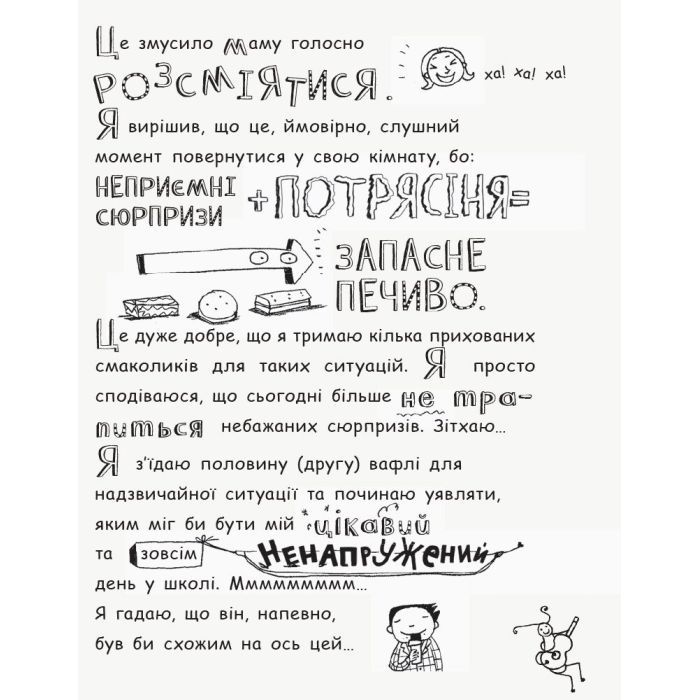 Це змусило маму голосно
РОЗСМІЯТИСЯ.
ха! ха! ха!
Я вирішив, що це, ймовірно, слушний
момент повернутися у свою кімнату, бо:
НЕПРИЄМНІ
СЮРПРИЗИ
+ПОТРЯСІННЯ=
ЗАПАСНЕ
ПЕЧИВО.
Це дуже добре, що я тримаю кілька прихованих
смаколиків для таких ситуацій. Я просто
сподіваюся, що сьогодні більше не тра-
питься небажаних сюрпризів. Зітхаю…
Я з'їдаю половину (другу) вафлі для
надзвичайної ситуації та починаю уявляти,
яким міг би бути мій цікавий
та зовсім НЕНАПРУЖЕНИЙ
день у школі. Мммммммммм…
Я гадаю, що він, напевно,
був би схожим на ось цей…